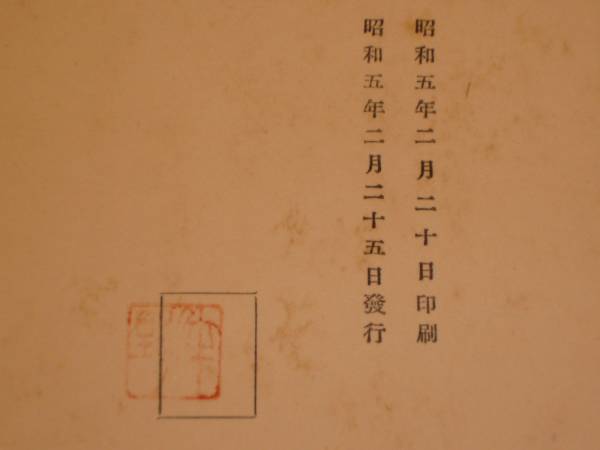 昭和五年二月二十日印刷
昭和五年二月二十五日發行